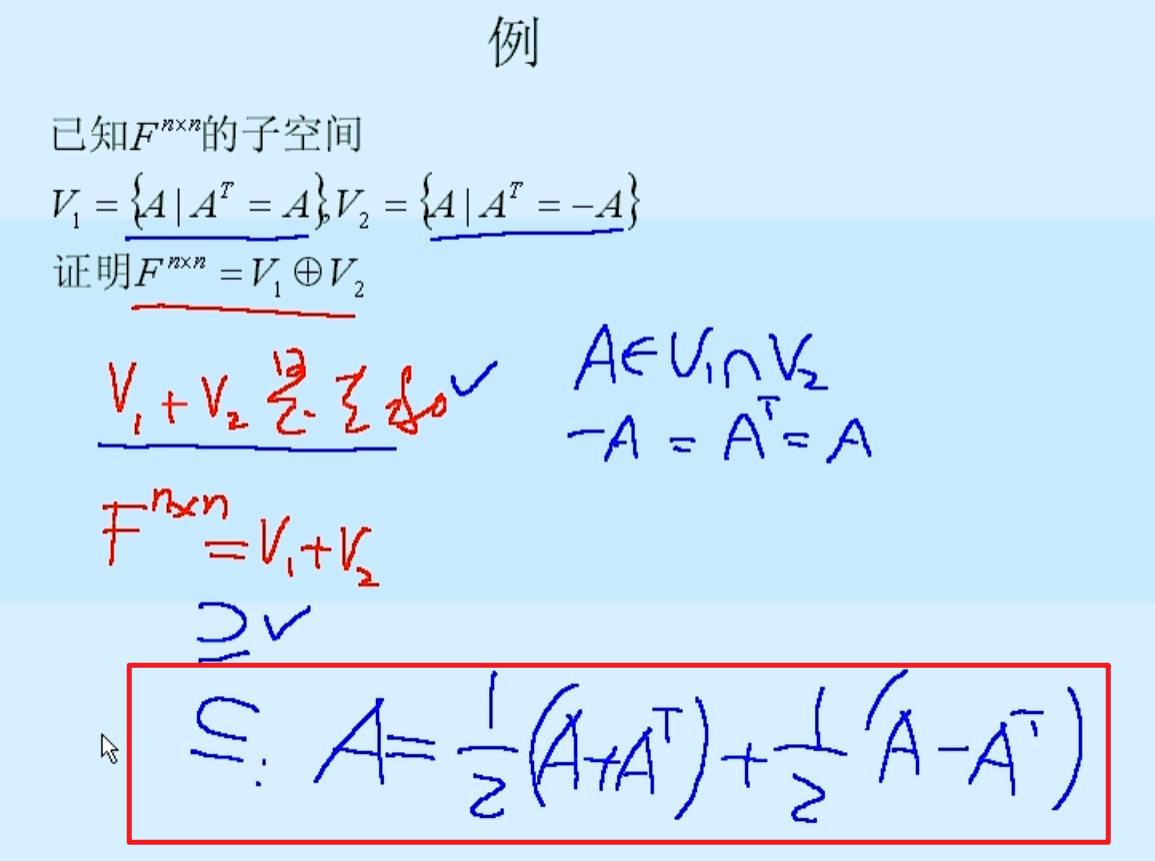 例
已知F^{n×n}的子空间
V_1 = {A | A^T = A}, V_2 = {A | A^T = -A}
证明F^{n×n} = V_1 ⊕ V_2
V_1 + V_2 是直和 ✓
A ∈ V_1 ∩ V_2
-A = A^T = A
F^{n×n} = V_1 + V_2
⊇ ✓
⊆: A = \frac{1}{2}(A + A^T) + \frac{1}{2}(A - A^T)